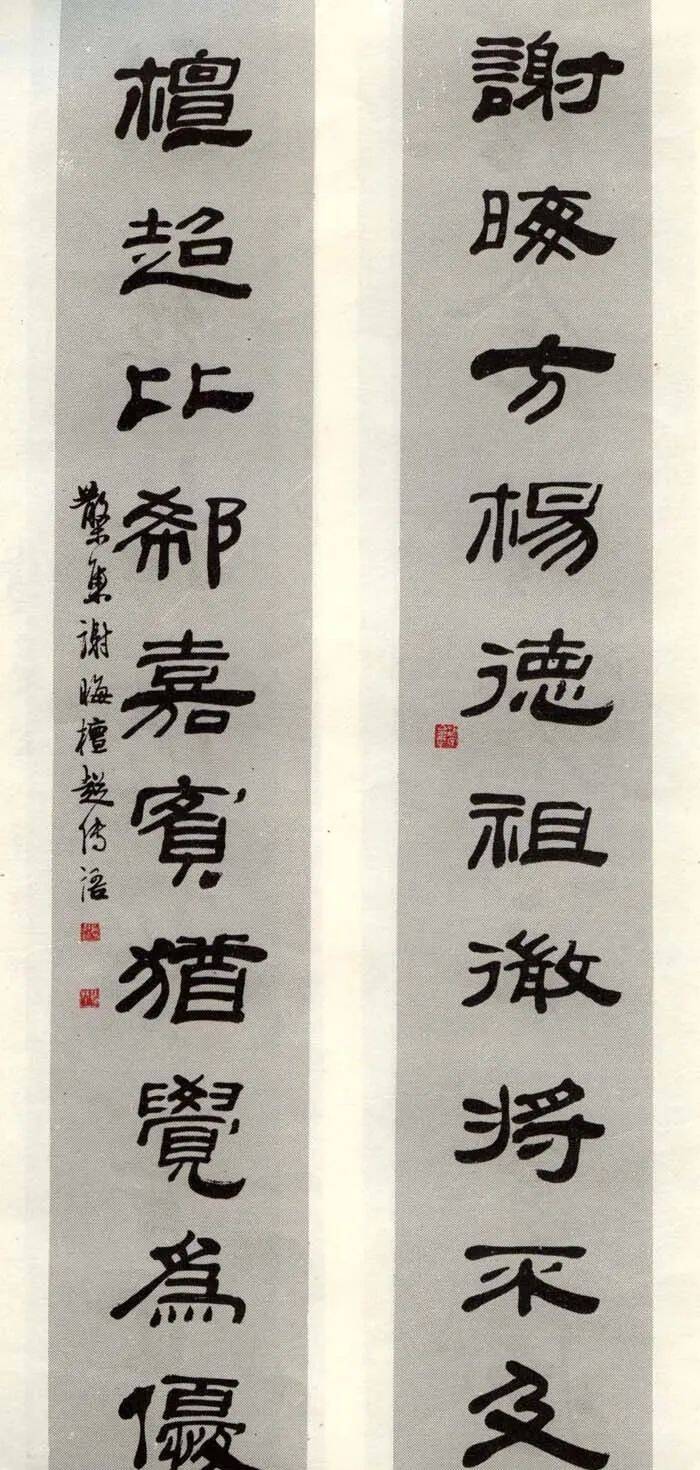 謝晦方楊德祖微將不及
檀超比郗嘉賓猶覺為優
檠集謝晦檀超傳語